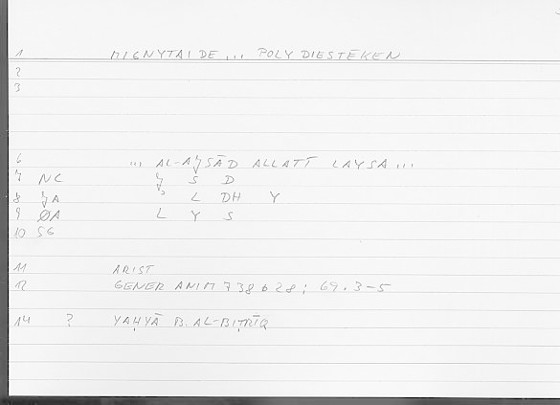 1 MIGNYTAI DE ... POLY DIESTĒKEN
2
3
6 ... AL-AǦSĀD ALLATĪ LAYSA ...
7 NC Ǧ S D
8 ǦA ʾ L DH Y
9 ØA L Y S
10 SG
11 ARIST
12 GENER ANIM 738 b 28; 64.3-5
14 ? YAḤYĀ B. AL-BIṬRĪQ